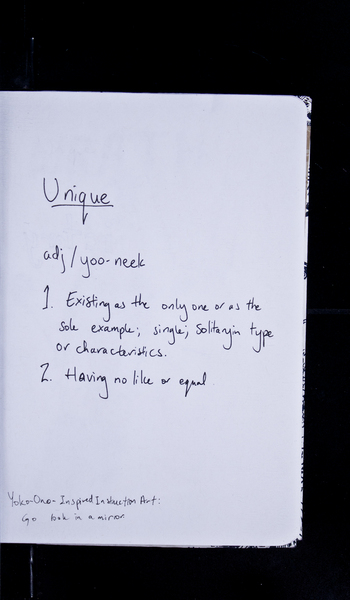 Unique
adj/yoo-neek
1. Existing as the only one or as the
sole example; single; Solitary in type
or characteristics.
2. Having no like or equal.
Yoko-Ono-Inspired Instruction Art:
Go look in a mirror